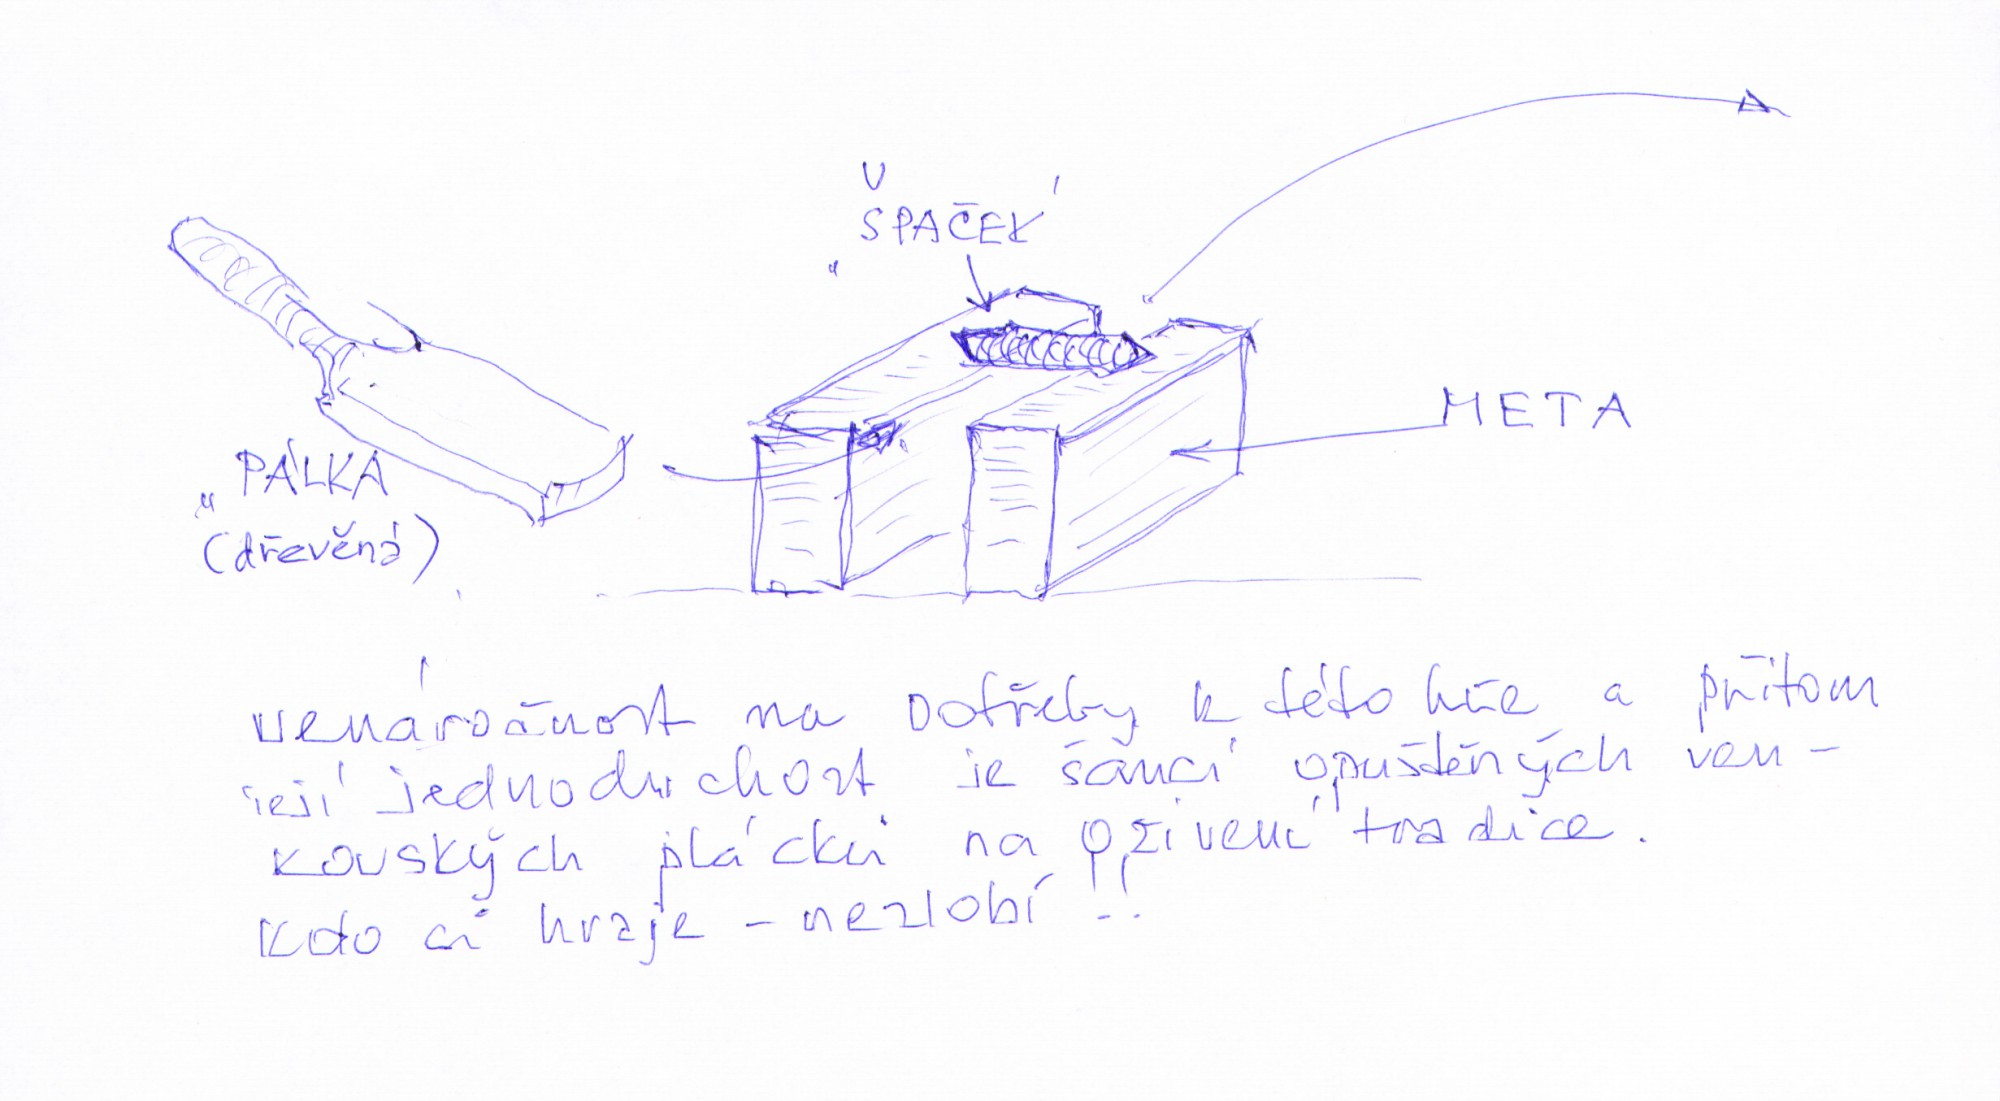 „ŠPAČEK"
META
„PÁLKA
(dřevěná)
nenáročnost na potřeby k této hře a přitom
její jednoduchost je šancí opuštěných ven-
kovských plácků na oživení tradice.
Kdo si hraje – nezlobí !!